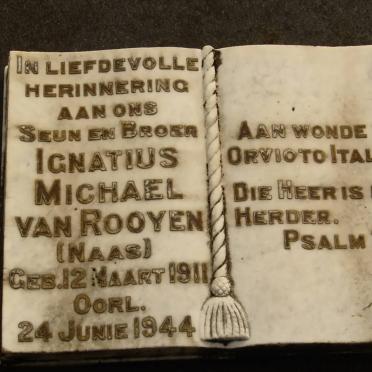 IN LIEFDEVOLLE
HERINNERING
AAN ONS
SEUN EN BROER
IGNATIUS
MICHAEL
VAN ROOYEN
(NAAS)
GEB. 12 MAART 1911
OORL.
24 JUNIE 1944
AAN WONDE
ORVIOTO ITAL
DIE HEER IS
HERDER.
PSALM